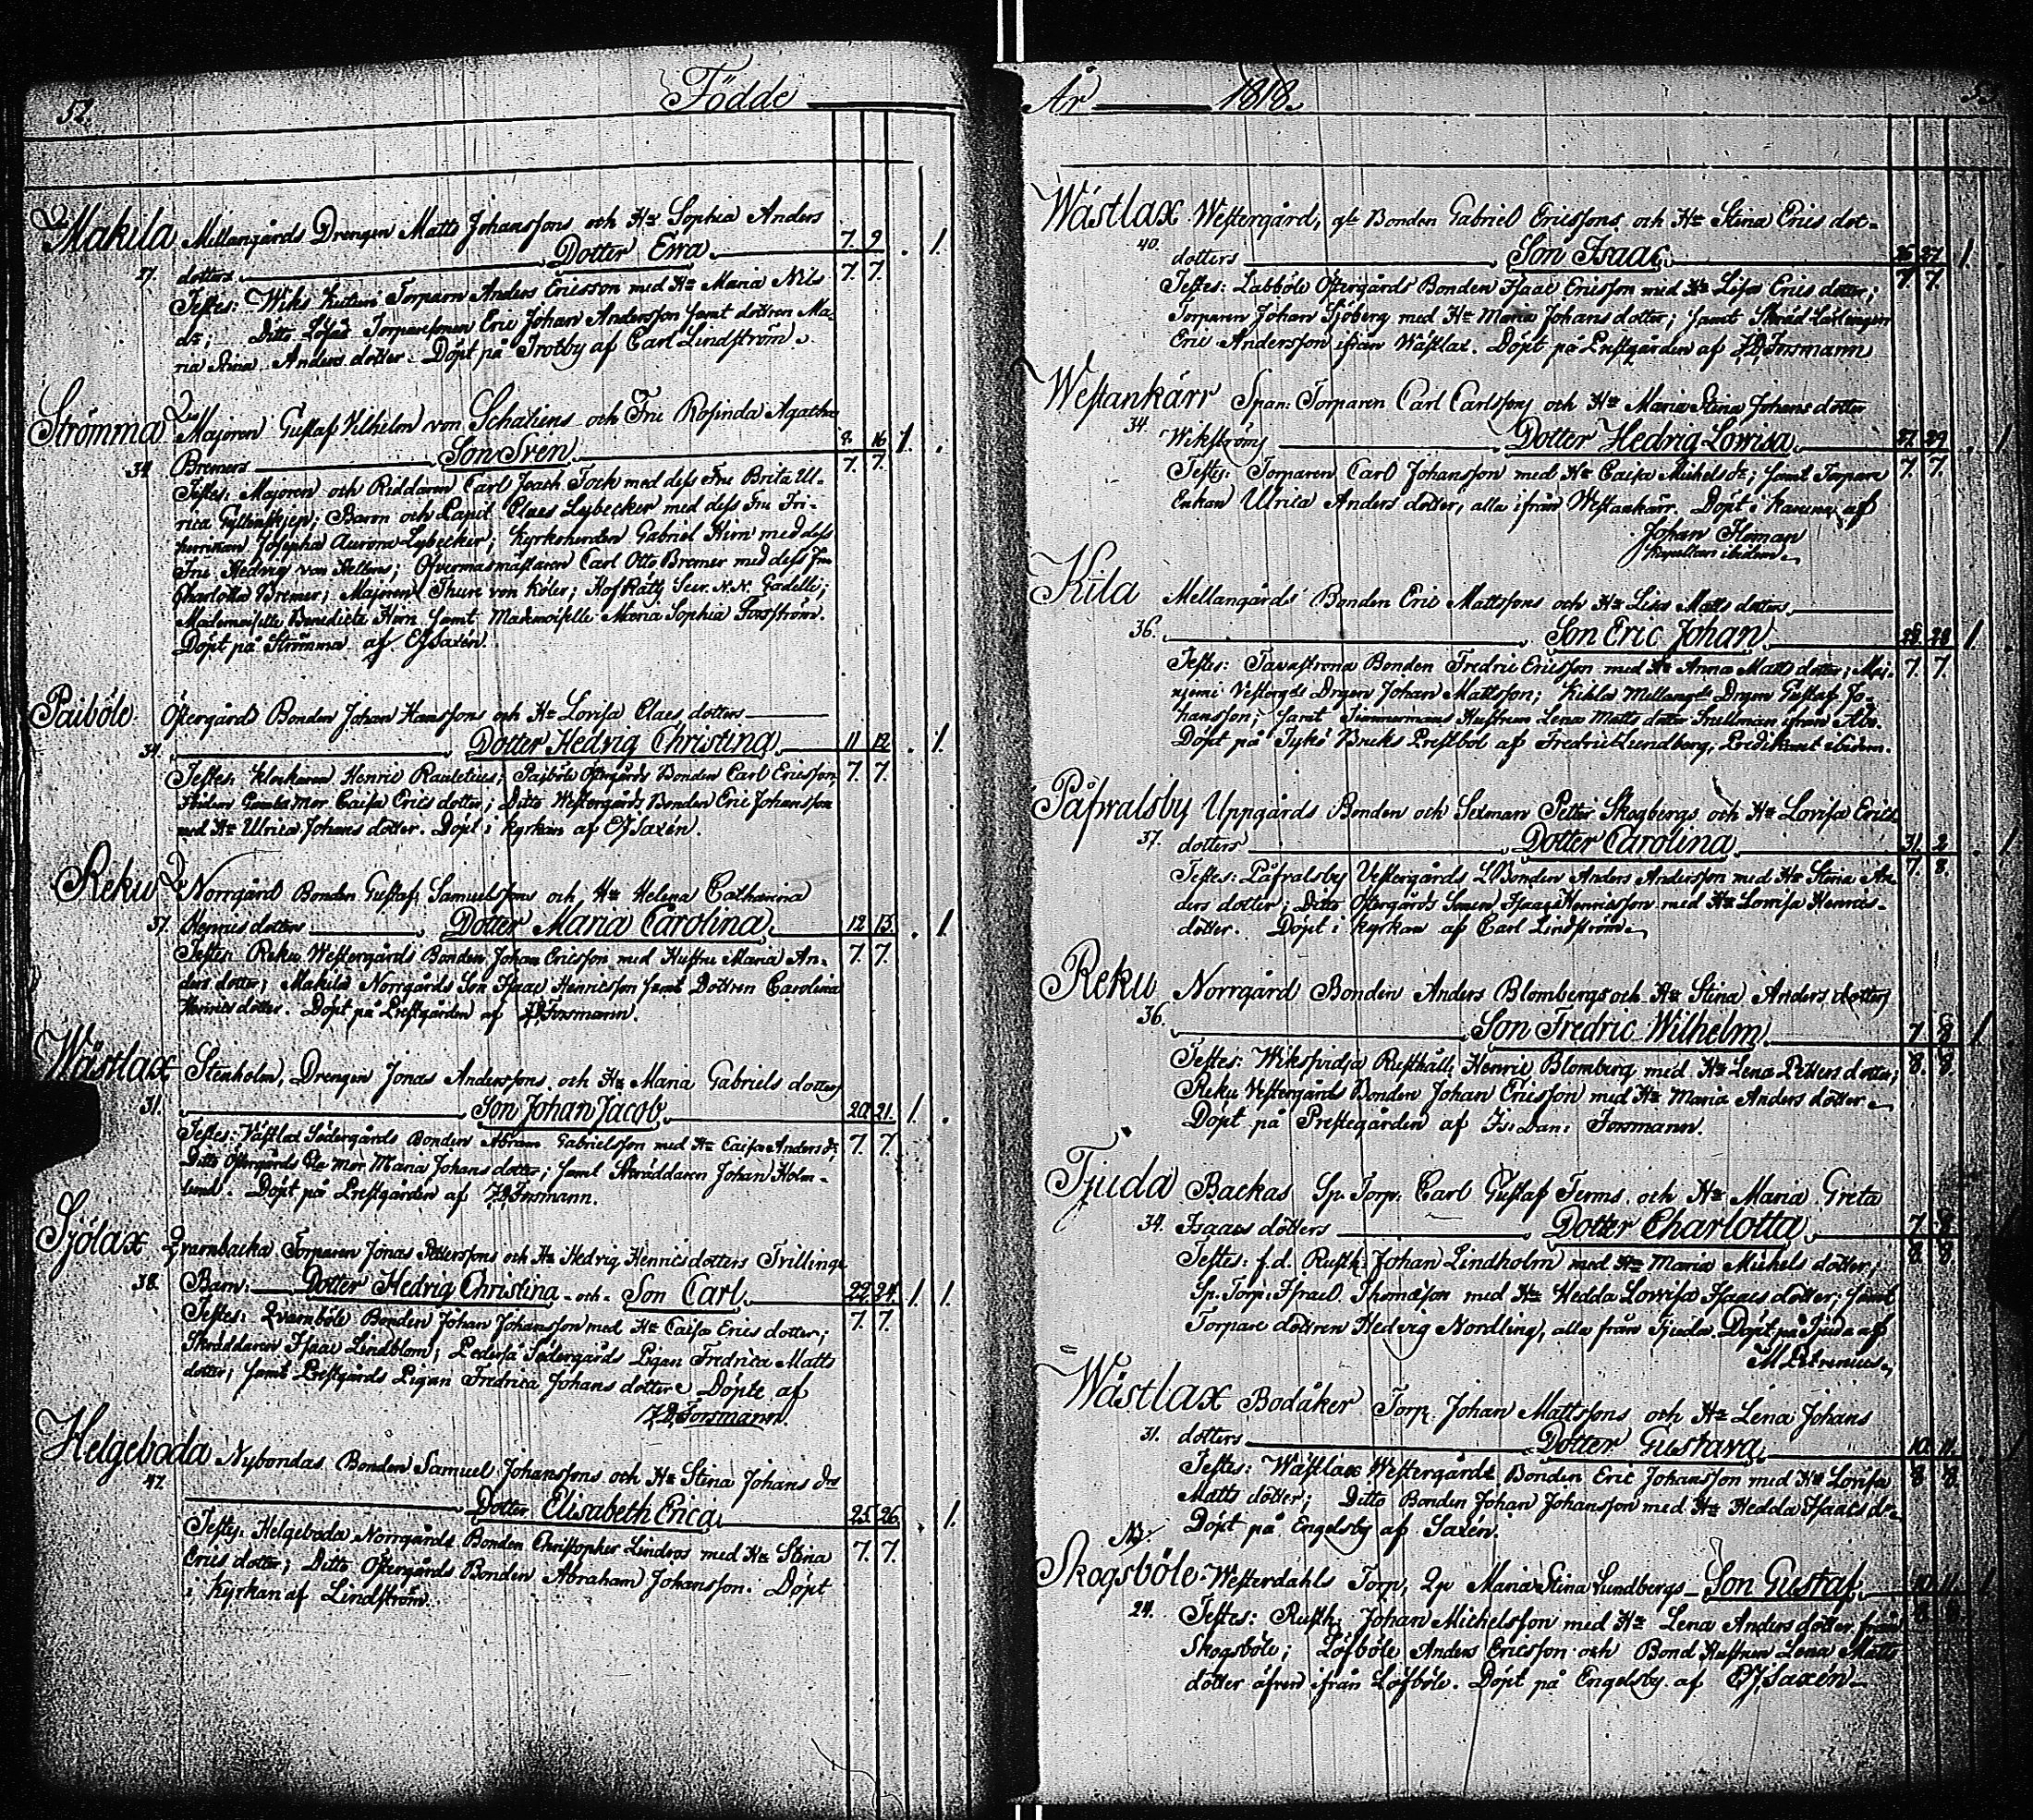 52.
Födde
Makila Mellangårds Drengen Matts Johanssons och Hu Sophia Anders
27. dotters Dotter Eva 7. 9. 1.
Testes: Wiks Torparn Anders Ericsson med Hu Maria Nils 7. 7.
dr; Ditto Torparesonen Eric Johan Andersson samt dottren Ma-
ria Stina Anders dotter. Döpt på Trotby af Carl Lindström.
Strömma Majoren Gustaf Vilhelm von Schatiens och Fru Rosinda Agatha
34. Bremers Son Sven 9. 16. 1.
Testes: Majoren och Riddaren Carl Joach Tock med dess Fru Brita Ul- 7. 7.
rica Gyllenskjep; Baron och Capit Claes Lybecker med dess Fru Fri-
herrinan Josepha Aurora Lybecker; Kyrkoherden Gabriel Hirn med dess
Fru Hedvig von Hellens; Öfvermasmästaren Carl Otto Bremer med dess Fru
Charlotta Bremer; Majoren Thure von Köler; HofRätts Secr. N.N. Gadelli;
Mademoiselle Benedicta Hirn samt Mademoiselle Maria Sophia Forsström.
Döpt på Strömma af EJSaxén.
Paiböle Östergård Bonden Johan Hanssons och Hu Lovisa Claes dotters
34. Dotter Hedvig Christina 11 12. 1.
Testes: Klockaren Henric Rauletius; Paiböle Östergårds Bonden Carl Ericsson, 7. 7.
ibidem Gamba mor Caisa Erics dotter; Ditto Westergårds Bonden Eric Johansson
med Hu Ulrica Johans dotter. Döpt i Kyrkan af EJSaxén.
Reku Norrgård Bonden Gustaf Samuelssons och Hu Helena Catharina
37. Henrics dotters Dotter Maria Carolina 12 13. 1.
Testes: Reku Westergårds Bonden Johan Ericsson med Hustru Maria An- 7. 7.
ders dotter; Makila Norrgårds Son Isaac Henricsson samt Dottren Carolina
Henrics dotter. Döpt på Prestgården af JDForsmann.
Wästlax Stenholm, Drengen Jonas Anderssons och Hu Maria Gabriels dotters
31. Son Johan Jacob 20. 21. 1.
Testes: Västlax Södergårds Bonden Abram Gabrielsson med Hu Caisa Anders dr, 7. 7.
Ditto Östergårds mor Maria Johans dotter; samt Skräddaren Johan Holm-
lund. Döpt på Prestgården af JDForsmann.
Sjölax Qvarnbacka Torparen Jonas Pettersons och Hu Hedvig Henrics dotters Tvillinge
38. Barn: Dotter Hedvig Christina och Son Carl 22. 24. 1. 1.
Testes: Qvarnböle Bonden Johan Johansson med Hu Caisa Erics dotter; 7. 7.
Skräddaren Isaac Lindblom; Pederså Södergårds Pigan Fredrica Matts
dotter; samt Prestgårds Pigan Fredrica Johans dotter. Döpte af
JDForsmann.
Helgeboda Nybondas Bonden Samuel Johanssons och Hu Stina Johans drs
47. Dotter Elisabeth Erica 25. 26. 1.
Testes: Helgeboda Norrgårds Bonden Christopher Lindros med Hu Stina 7. 7.
Erics dotter; Ditto Östergårds Bonden Abraham Johansson. Döpt
i Kyrkan af Lindström.
År 1818.
Wästlax Westergård, gle Bonden Gabriel Ericssons och Hu Stina Erics dot-
40. dotters Son Isaac 26 27 1.
Testes: Labböle Östergårds Bonden Isaac Ericsson med Hu Lisa Erics dotter; 7. 7.
Torparen Johan Sjöberg med Hu Maria Johans dotter; samt Skräd Lärlingen
Eric Andersson ifrån Wästlax. Döpt på Prestgården af JDForsmann
Westankärr Span: Torparen Carl Carlssons och Hu Maria Stina Johans dotter
34. Wikströms Dotter Hedvig Lowisa 27. 29. 1.
Testes: Torparen Carl Johansson med Hu Caisa Michels dr; samt Torpare 7. 7.
Enkan Ulrica Anders dotter, alla ifrån Westankärr. Döpt i Karuna af
Johan Homan
ibidem.
Kila Mellangårds Bonden Eric Mattssons och Hu Lisa Matts dotters
36. Son Eric Johan 28. 1.
Testes: Tavastrona Bonden Fredric Ericsson med Hu Anna Matts dotter; Mej- 7. 7.
njemi Vestergds Drgen Johan Mattsson; Kikla Mellangds Drgen Gustaf Jo-
hansson; samt Timmermans Hustrun Lena Matts dotter Snellman ifrån Åbo.
Döpt på Tykö Bruks Prestbol af Fredric Lundberg, Predikant ibidem.
Påfvalsby Uppgårds Bonden och Sexman Petter Skogbergs och Hu Lovisa Erics
37. dotters Dotter Carolina 31. 2. 1.
Testes: Påfvalsby Vestergårds LBonden Anders Andersson med Hu Stina An- 7. 8.
ders dotter; Ditto Östergårds Sonen Isaac Henricsson med Hu Lovisa Henrics-
dotter. Döpt i Kyrkan af Carl Lindström.
Reku Norrgård Bonden Anders Blombergs och Hu Stina Anders dotters
36. Son Fredric Wilhelm 7. 8. 1.
Testes: Wiksvidja Rusthåll: Henric Blomberg med Hu Lena Petters dotter; 8. 8.
Reku Vestergårds Bonden Johan Ericsson med Hu Maria Anders dotter.
Döpt på Prestegården af Is: Dan: Forsmann.
Tjuda Backas Sp. Torp: Carl Gustaf Terms och Hu Maria Greta
34. Isaacs dotters Dotter Charlotta 7. 8.
Testes: f.d. Rusth: Johan Lindholm med Hu Maria Michels dotter; 8. 8.
Sp. Torp: Israel Thomasson med Hu Hedda Lovisa Isaacs dotter; samt
Torpare dottren Hedvig Nordling, alla från Tjuda. Döpt på Tjuda af
M Petrenius.
Wästlax Bodåker Torp: Johan Mattssons och Hu Lena Johans
31. dotters Dotter Gustava 10. 11. 1
Testes: Wästlax Westergårds Bonden Eric Johansson med Hu Lovisa 8. 8.
Matts dotter; Ditto Bonden Johan Johansson med Hu Hedda Isaacs dr.
Döpt på Engelsby af Saxén.
Skogsböle Westerdahls Torp, Qp Maria Stina Lundbergs Son Gustaf 10. 11. 1
24. Testes: Rusth: Johan Michelsson med Hu Lena Anders dotter från 8. 8.
Skogsböle; Löfböle Anders Ericsson och Bond Hustrun Lena Matts
dotter äfven ifrån Löfböle. Döpt på Engelsby af EJSaxén.